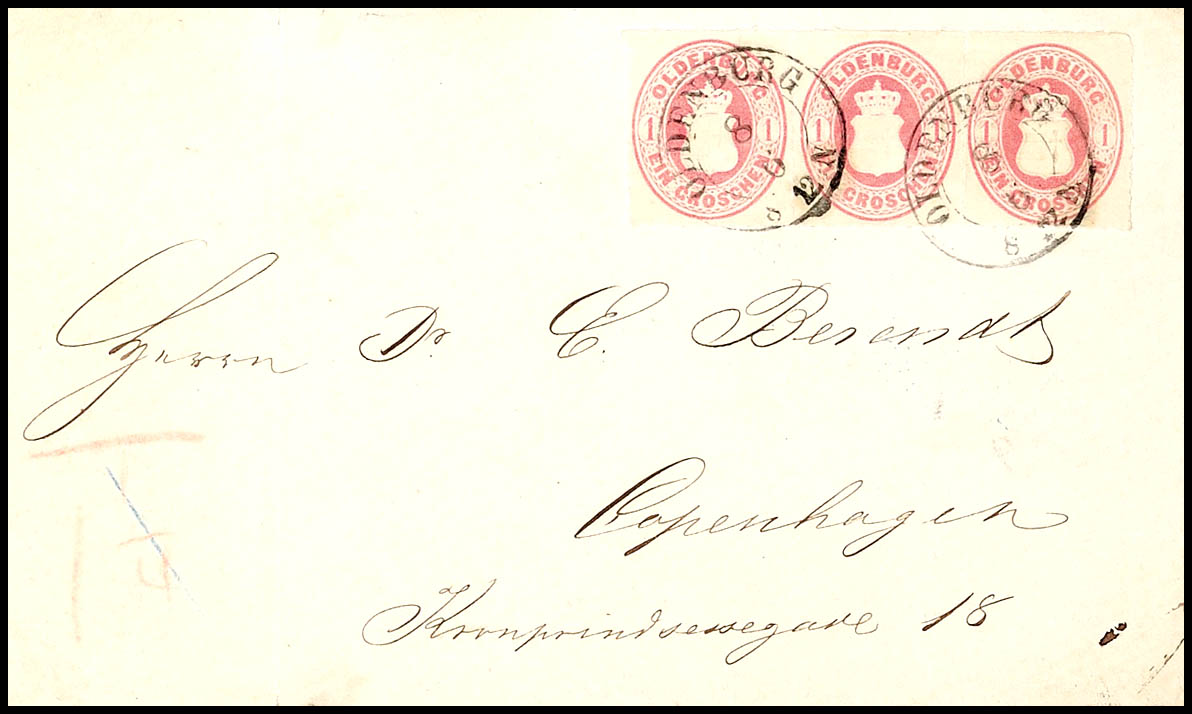 OLDENBURG OLDENBURG OLDENBURG
1 1 1 1 1
EIN GROSCHEN EIN GROSCHEN EIN GROSCHEN
OLDENBURG
8 6
8 12 N
OLDENBURG
8
Herrn Dr. E. Berendt
Copenhagen
Kronprindsessegade 18